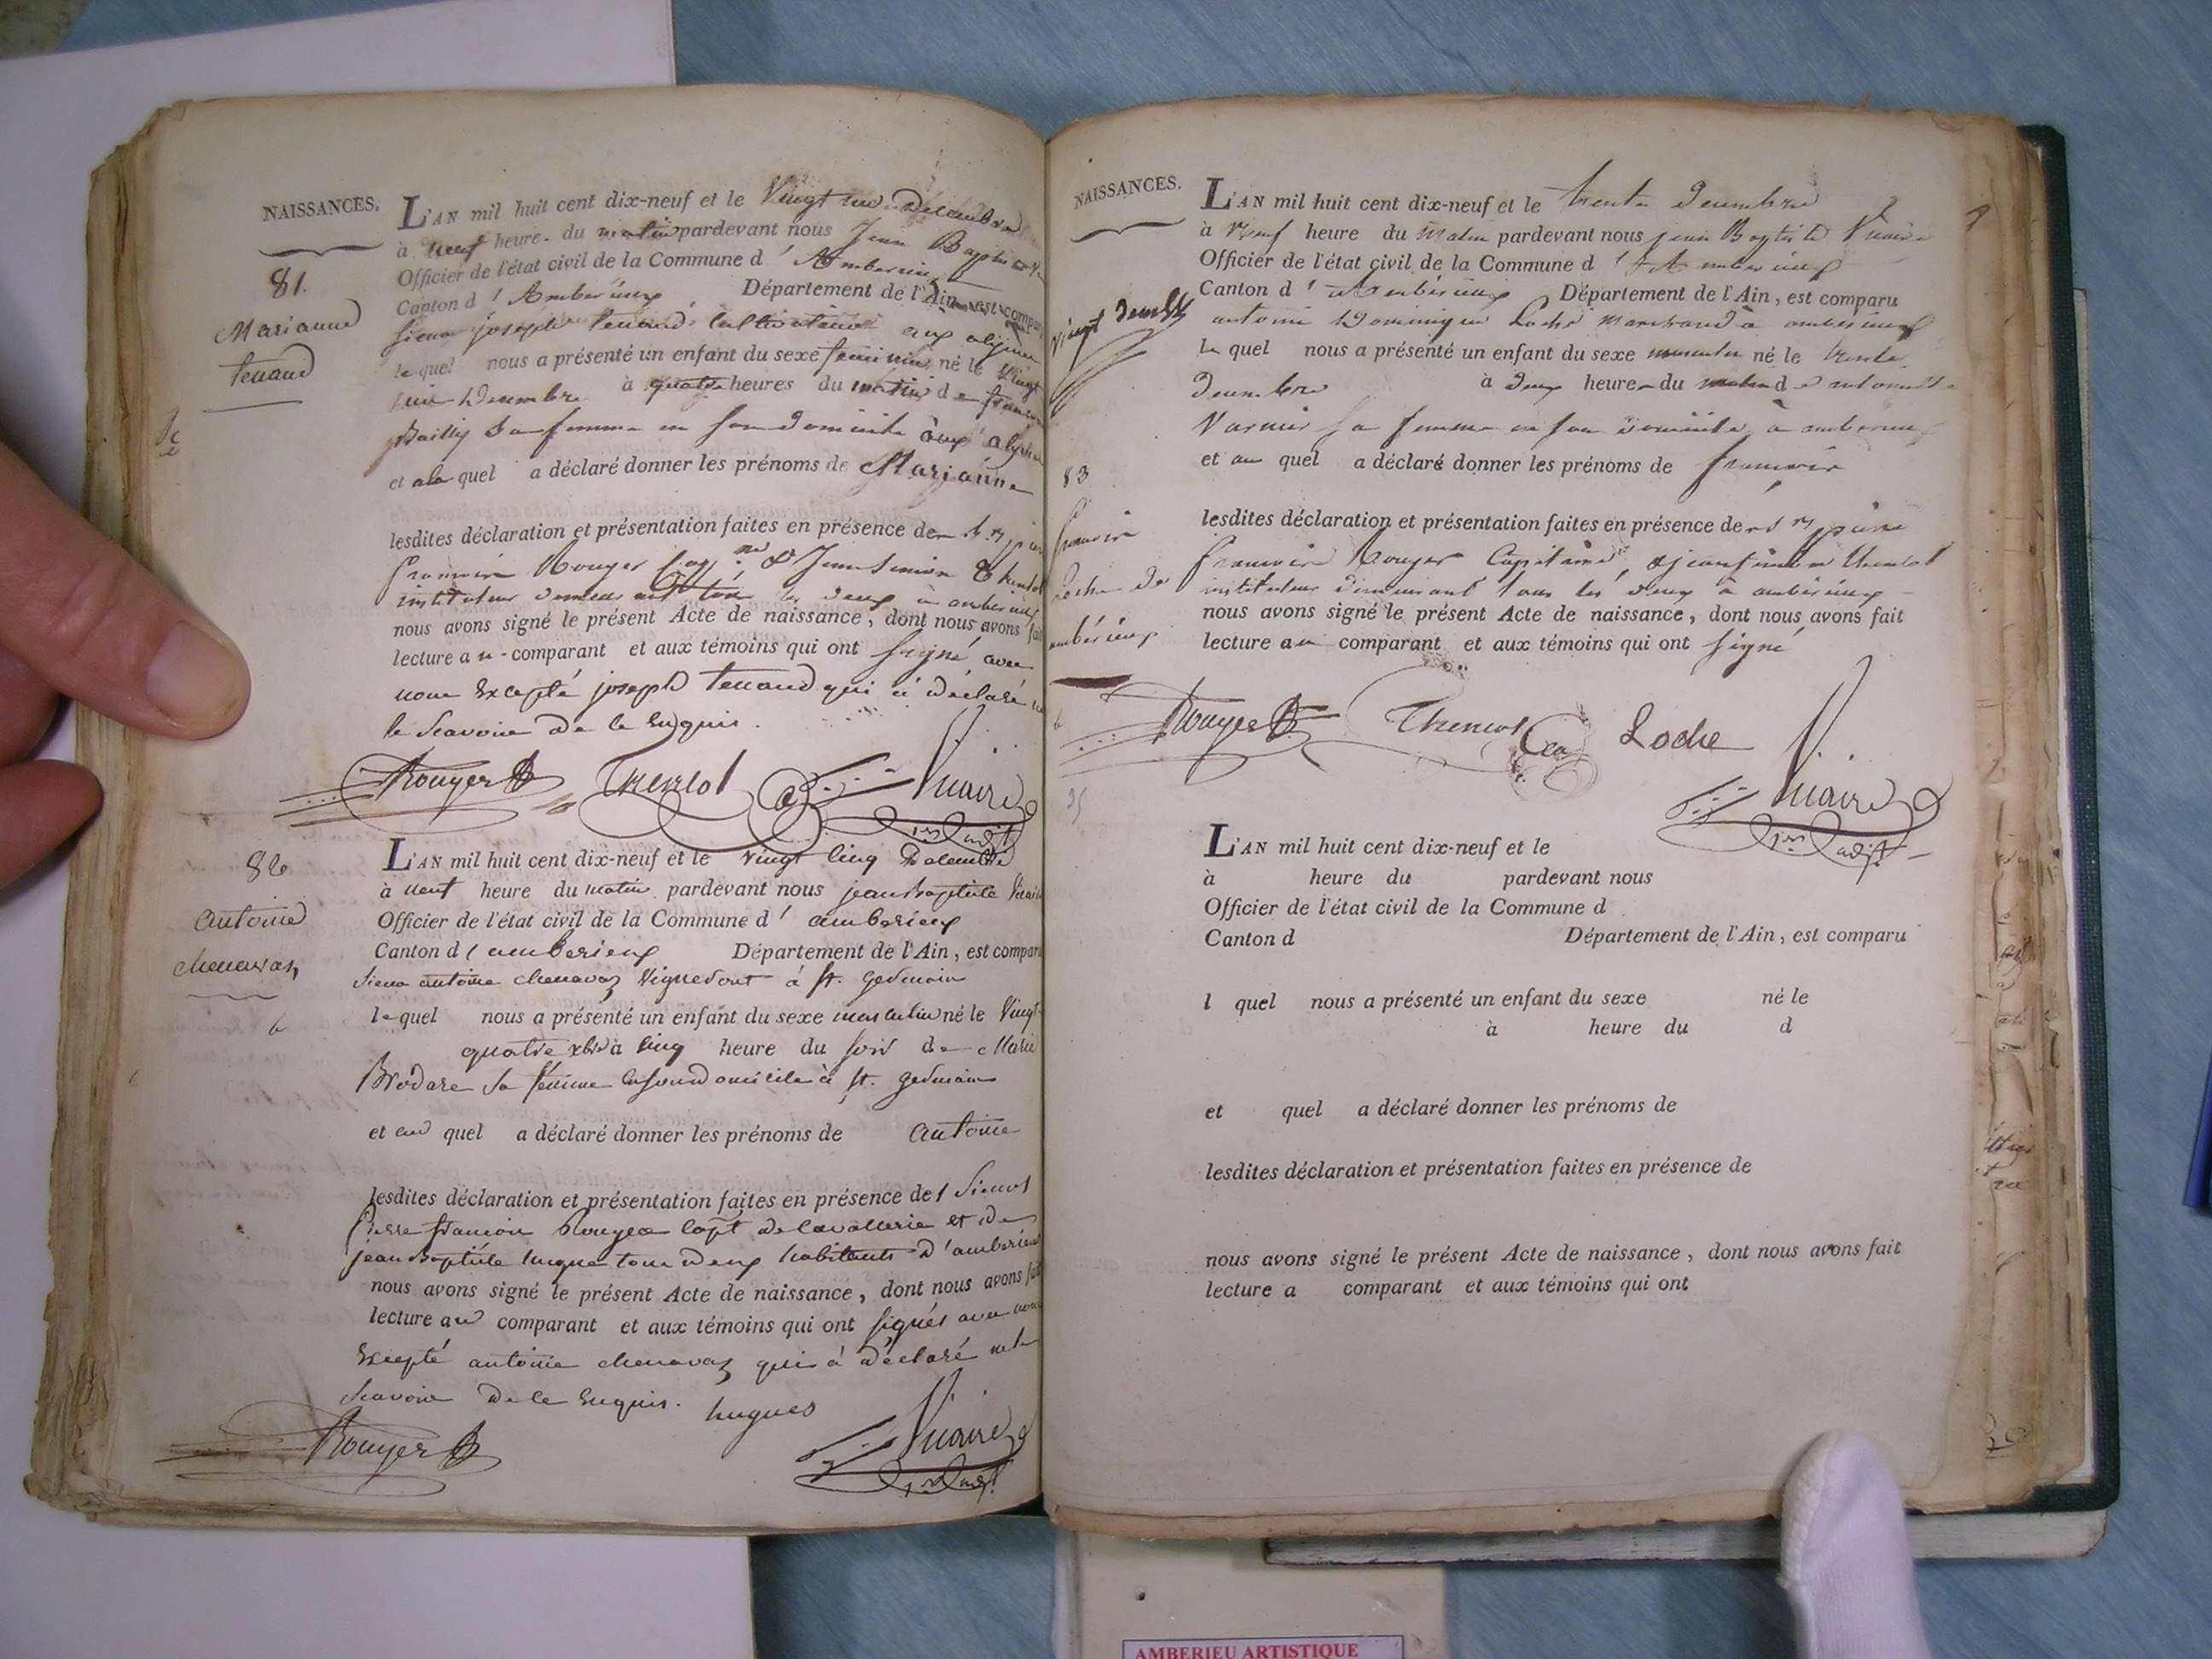 NAISSANCES.
81.
Marianne
tenand
L'AN mil huit cent dix-neuf et le Vingt un Decembre
à neuf heure du matin pardevant nous Jean Baptiste
Officier de l'état civil de la Commune d' Amberieux
Canton d' Amberieux Département de l'Ain, est comparu
Sieur joseph tenand, Cultivateur aux
le quel nous a présenté un enfant du sexe feminin né le Vingt
decembre à quatre heures du matin de
Bailly Sa femme en Son Domicile aux
et a la quel a déclaré donner les prénoms de Marianne
lesdites déclaration et présentation faites en présence de
francois Rouyer & Jean Simon Thenlot
instituteur demeurant tous les deux a amberieux
nous avons signé le présent Acte de naissance, dont nous avons fait
lecture au comparant et aux témoins qui ont signé avec
nous Excepté joseph tenand qui a déclaré ne
le Scavoir de ce Enquis.
Rouyer Thenlot Vicaire
82
antoine
chenavaz
L'AN mil huit cent dix-neuf et le vingt cinq Decembre
à neuf heure du matin pardevant nous jean baptiste Vicaire
Officier de l'état civil de la Commune d' amberieux
Canton d' amberieux Département de l'Ain, est comparu
Sieur antoine chenavaz Vigneront à st. germain
le quel nous a présenté un enfant du sexe masculin né le Vingt
quatre xbre à cinq heure du soir de Marie
Brodare sa femme en son domicile à st. germain
et au quel a déclaré donner les prénoms de antoine
lesdites déclaration et présentation faites en présence des Sieurs
Pierre francois Rouyer capt de cavallerie et de
jean Baptiste hugue tous deux habitants d'amberieux
nous avons signé le présent Acte de naissance, dont nous avons fait
lecture au comparant et aux témoins qui ont signés avec nous
Excepté antoine chenavaz qui à déclaré ne le
Scavoir de ce Enquis. hugues
Rouyer Vicaire
NAISSANCES.
83
francois
Loche
amberieux
L'AN mil huit cent dix-neuf et le trente Decembre
à neuf heure du matin pardevant nous jean Baptiste Vicaire
Officier de l'état civil de la Commune d' Amberieux
Canton d' Amberieux Département de l'Ain, est comparu
antoine Dominique Loche marchand à amberieux
le quel nous a présenté un enfant du sexe masculin né le trente
Decembre à Deux heure du matin d
Sa femme en son domicile à amberieux
et au quel a déclaré donner les prénoms de francois
lesdites déclaration et présentation faites en présence de pierre
francois Rouyer Capitaine, Thenlot
instituteur demeurant tous les deux à amberieux
nous avons signé le présent Acte de naissance, dont nous avons fait
lecture au comparant et aux témoins qui ont signé
Rouyer Thenlot Loche
Vicaire
L'AN mil huit cent dix-neuf et le
à heure du pardevant nous
Officier de l'état civil de la Commune d
Canton d Département de l'Ain, est comparu
l quel nous a présenté un enfant du sexe né le
à heure du d
et quel a déclaré donner les prénoms de
lesdites déclaration et présentation faites en présence de
nous avons signé le présent Acte de naissance, dont nous avons fait
lecture a comparant et aux témoins qui ont
AMBERIEU ARTISTIQUE